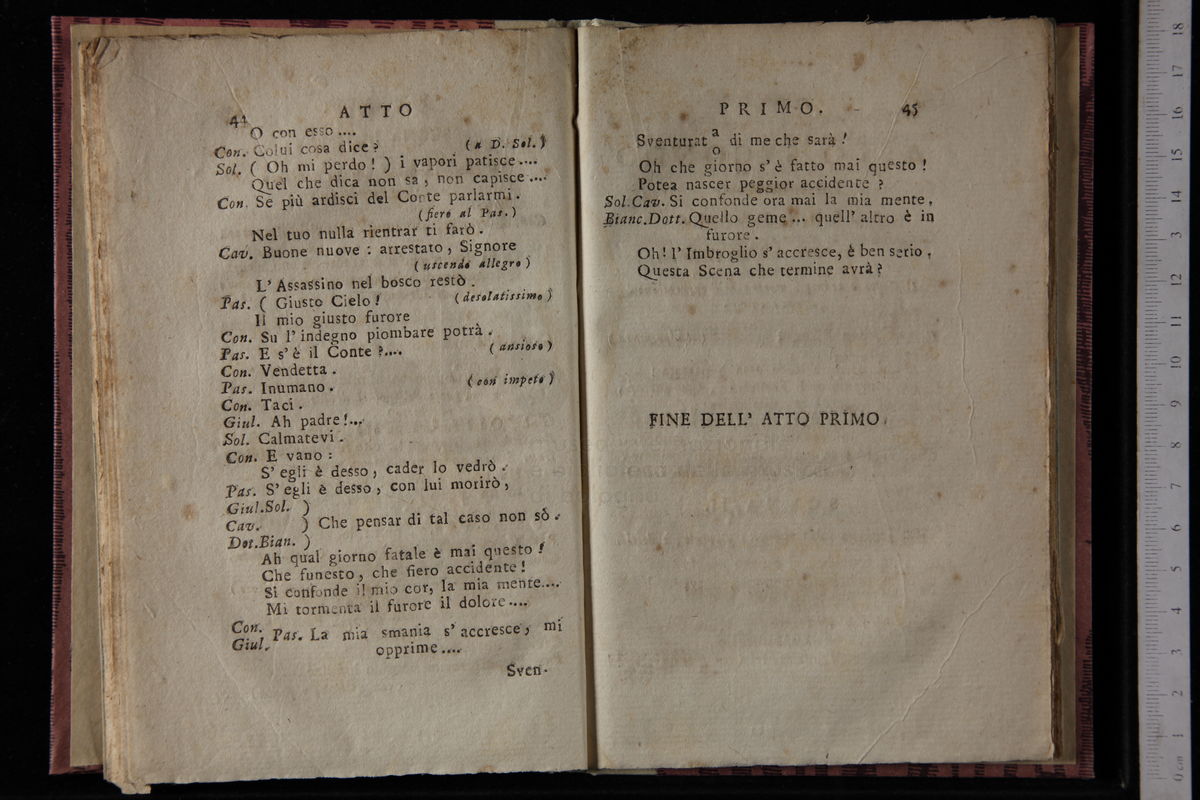 44 ATTO
O con esso....
Con. Colui cosa dice? (a D. Sol.)
Sol. ( Oh mi perdo! ) i vapori patisce....
Quel che dica non sa, non capisce....
Con. Se più ardisci del Conte parlarmi.
(fiero al Pas.)
Nel tuo nulla rientrar ti farò.
Cav. Buone nuove: arrestato, Signore
(uscendo allegro)
L'Assassino nel bosco restò.
Pas. ( Giusto Cielo! (desolatissimo)
Il mio giusto furore
Con. Su l'indegno piombare potrà.
Pas. E s'è il Conte?.... (ansioso)
Con. Vendetta.
Pas. Inumano. (con impeto)
Con. Taci.
Giul. Ah padre!...
Sol. Calmatevi.
Con. E vano:
S'egli è desso, cader lo vedrò.
Pas. S'egli è desso, con lui morirò,
Giul.Sol. )
Cav. ) Che pensar di tal caso non sò.
Dot.Bian. )
Ah qual giorno fatale è mai questo!
Che funesto, che fiero accidente!
Si confonde il mio cor, la mia mente....
Mi tormenta il furore il dolore....
Con.
Giul. Pas. La mia smania s'accresce, mi
opprime....
Sven-
PRIMO. 45
Sventurat a/o di me che sarà!
Oh che giorno s'è fatto mai questo!
Potea nascer peggior accidente?
Sol.Cav. Si confonde ora mai la mia mente,
Bianc.Dott. Quello geme... quell'altro è in
furore.
Oh! l'Imbroglio s'accresce, è ben serio,
Questa Scena che termine avrà?
FINE DELL'ATTO PRIMO.
0 cm 1 2 3 4 5 6 7 8 9 10 11 12 13 14 15 16 17 18